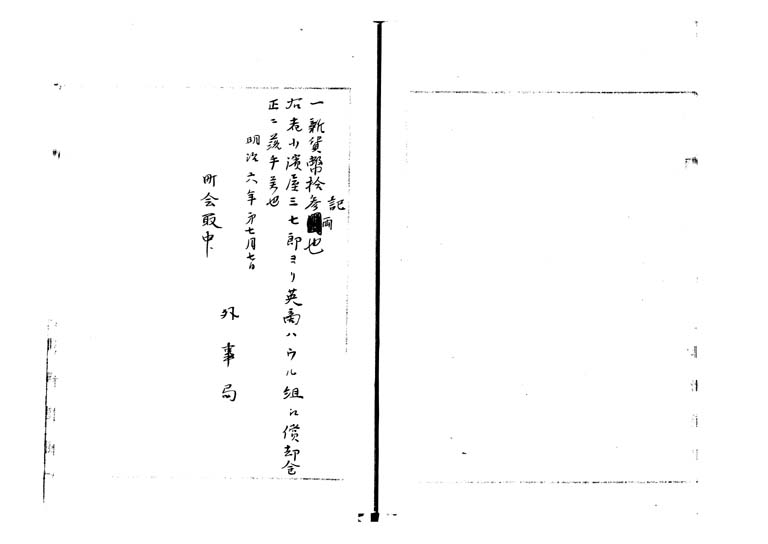 記
一新貨幣拾参両也
右者小濱屋三七郎ヨリ英商ハウル組江償却金
正ニ落手者也
明治六年第七月七日
外事局
町会取中